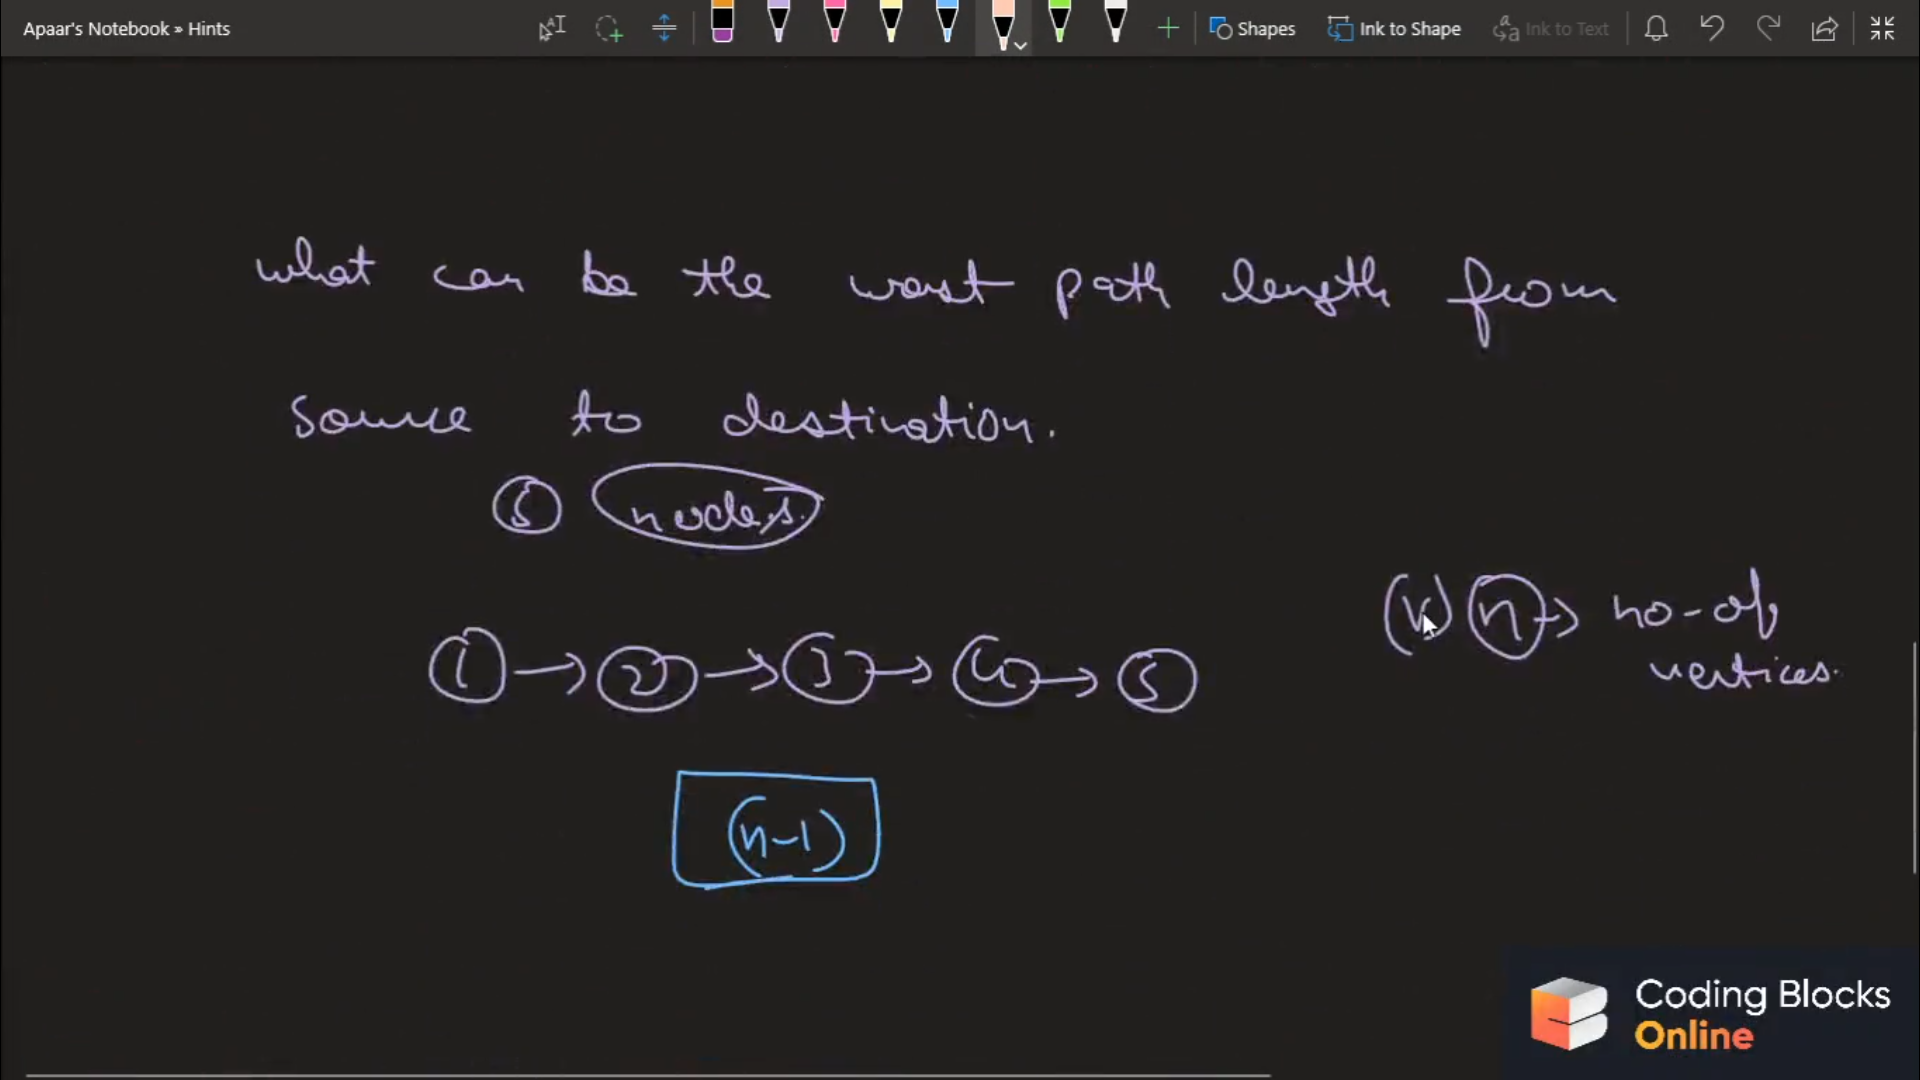 Apaar's Notebook » Hints
Shapes
Ink to Shape
Ink to Text
what can be the worst path length from
source to destination.
5 nodes.
1 → 2 → 3 → 4 → 5
n → no-of
vertices.
(n-1)
Coding Blocks
Online